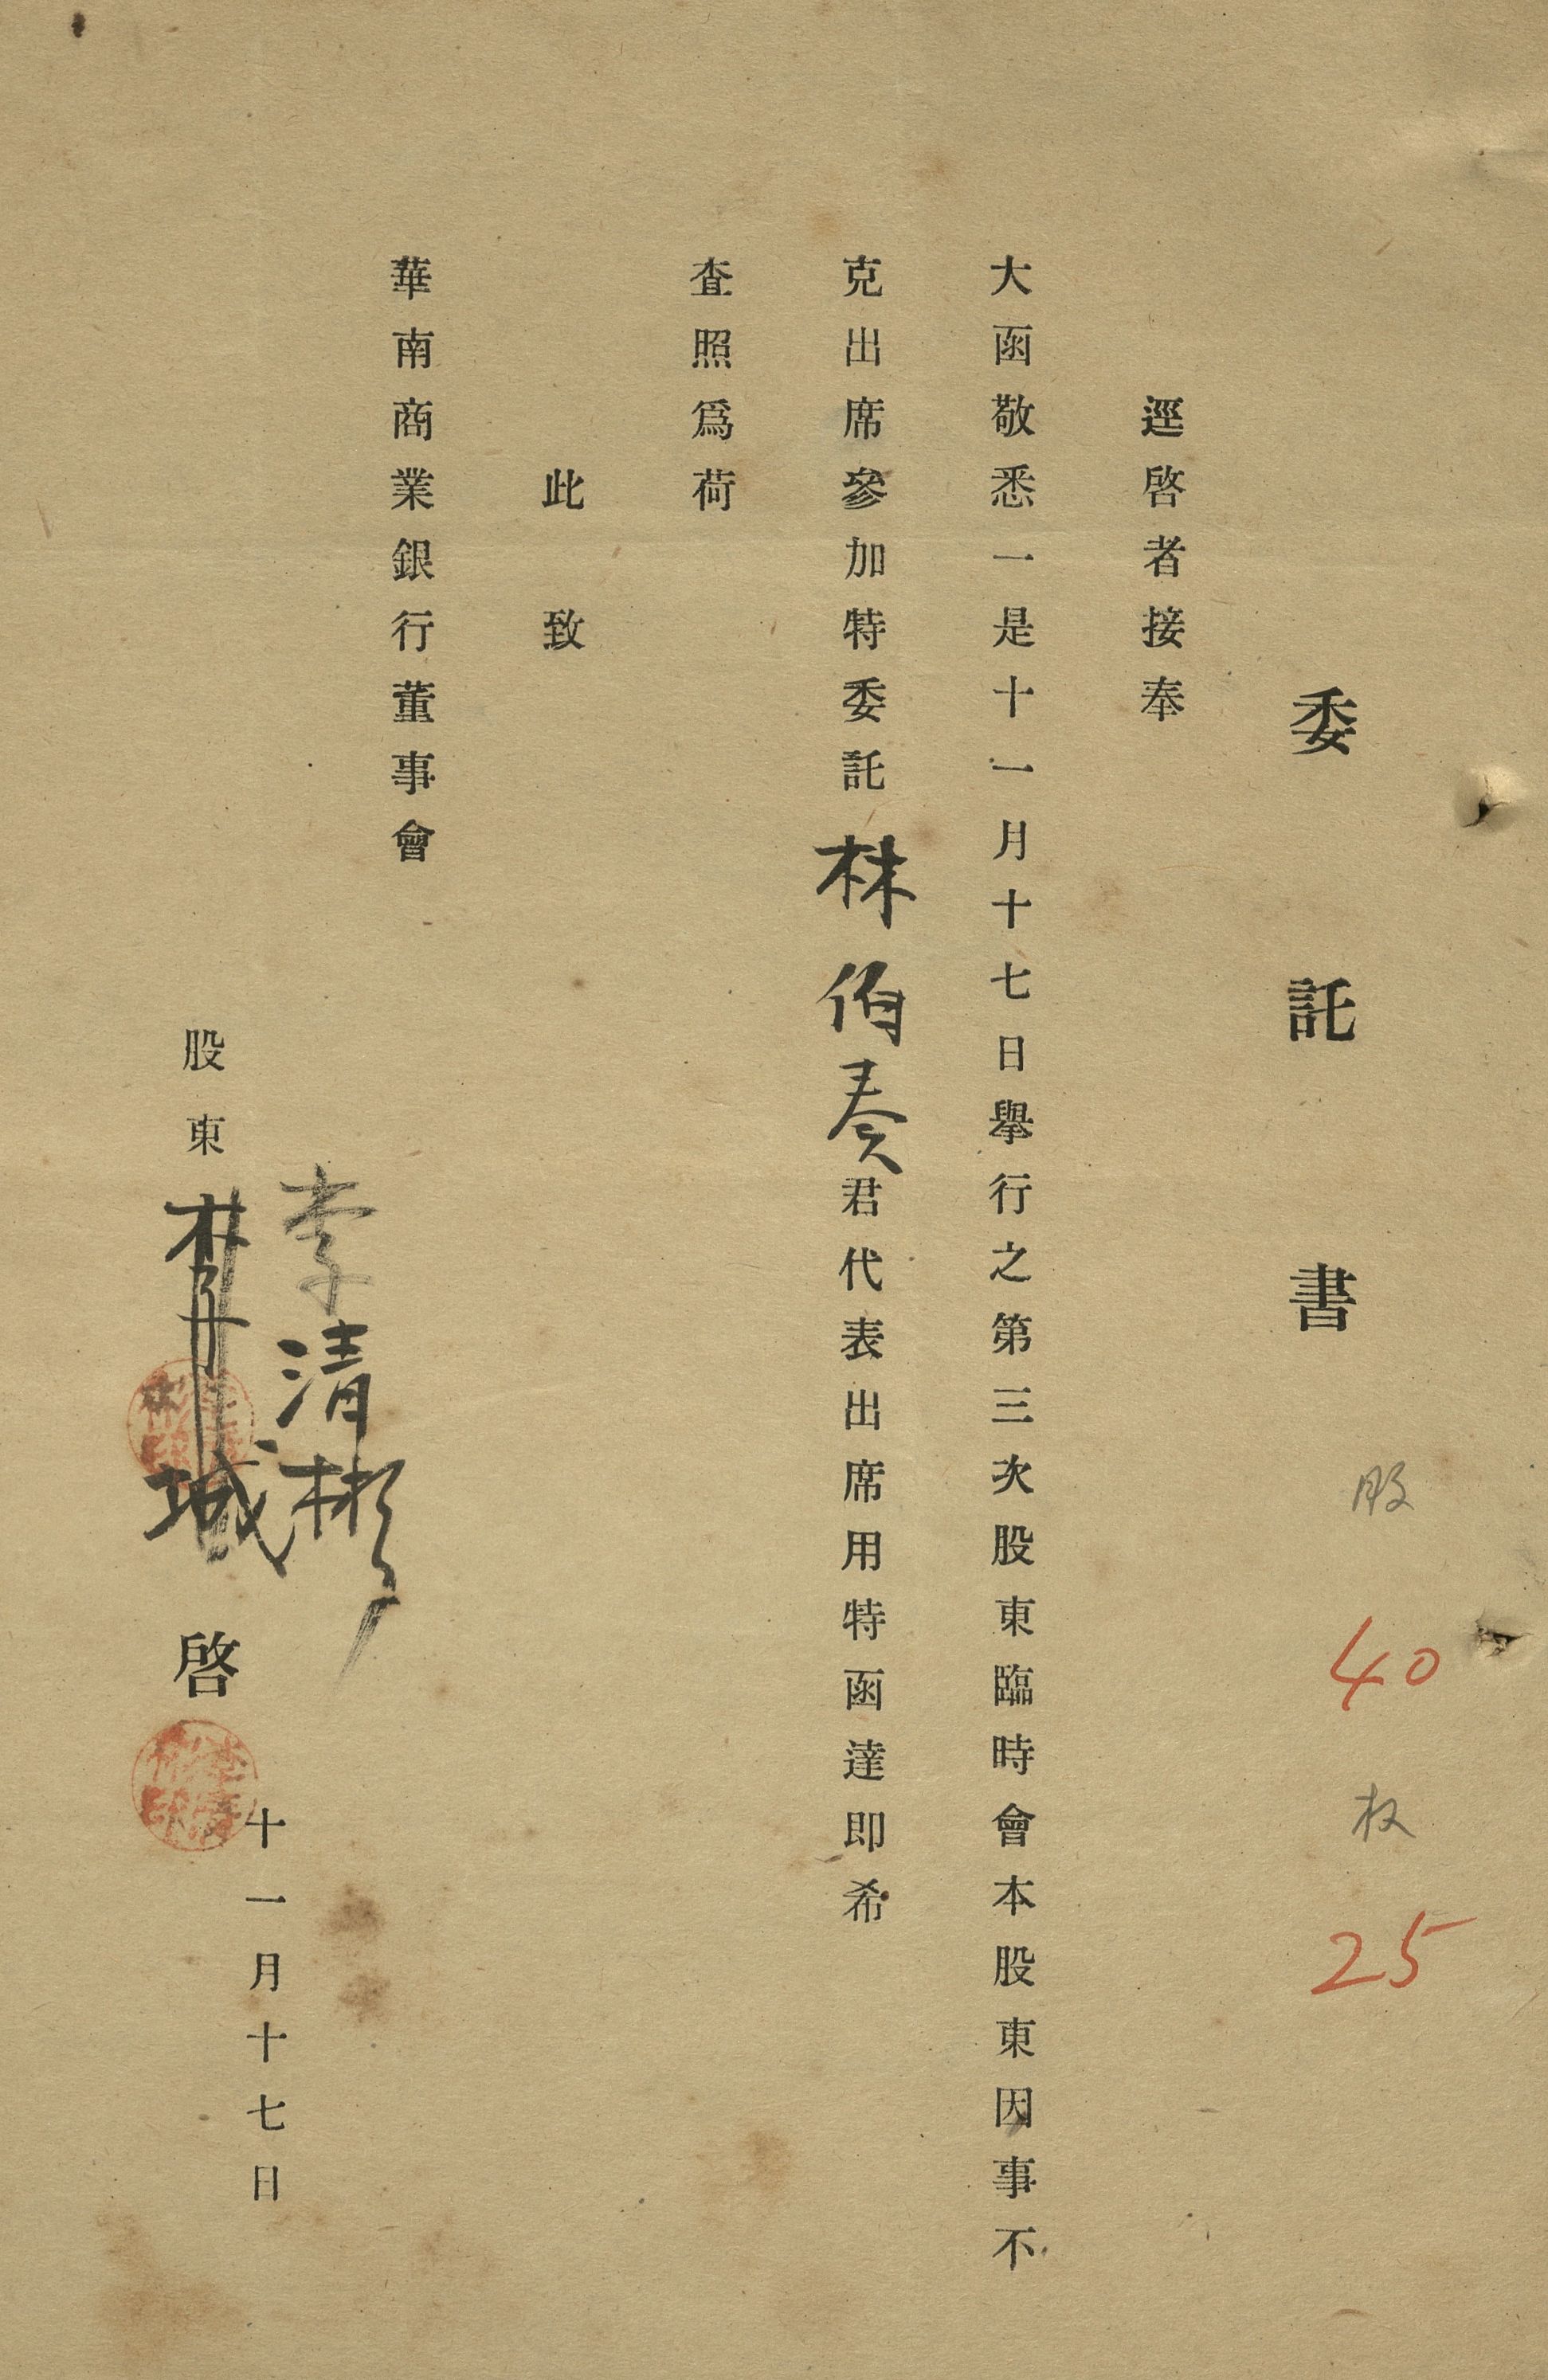 委託書
股 40 权 25
逕啓者接奉
大函敬悉一是十一月十七日舉行之第三次股東臨時會本股東因事不
克出席參加特委託林伯奏君代表出席用特函達即希
查照爲荷
此致
華南商業銀行董事會
李清彬
股東 啓
十一月十七日